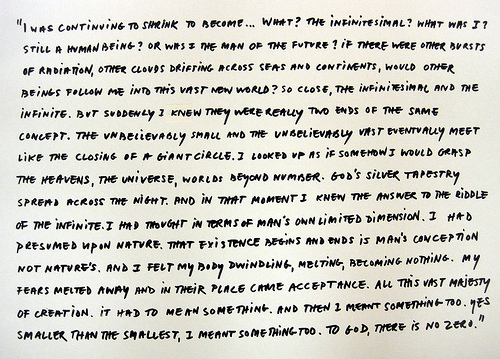 "I WAS CONTINUING TO SHRINK TO BECOME... WHAT? THE INFINITESIMAL? WHAT WAS I?
STILL A HUMAN BEING? OR WAS I THE MAN OF THE FUTURE? IF THERE WERE OTHER BURSTS
OF RADIATION, OTHER CLOUDS DRIFTING ACROSS SEAS AND CONTINENTS, WOULD OTHER
BEINGS FOLLOW ME INTO THIS VAST NEW WORLD? SO CLOSE, THE INFINITESIMAL AND THE
INFINITE. BUT SUDDENLY I KNEW THEY WERE REALLY TWO ENDS OF THE SAME
CONCEPT. THE UNBELIEVABLY SMALL AND THE UNBELIEVABLY VAST EVENTUALLY MEET
LIKE THE CLOSING OF A GIANT CIRCLE. I LOOKED UP AS IF SOMEHOW I WOULD GRASP
THE HEAVENS, THE UNIVERSE, WORLDS BEYOND NUMBER. GOD'S SILVER TAPESTRY
SPREAD ACROSS THE NIGHT. AND IN THAT MOMENT I KNEW THE ANSWER TO THE RIDDLE
OF THE INFINITE. I HAD THOUGHT IN TERMS OF MAN'S OWN LIMITED DIMENSION. I HAD
PRESUMED UPON NATURE. THAT EXISTENCE BEGINS AND ENDS IS MAN'S CONCEPTION
NOT NATURE'S. AND I FELT MY BODY DWINDLING, MELTING, BECOMING NOTHING. MY
FEARS MELTED AWAY AND IN THEIR PLACE CAME ACCEPTANCE. ALL THIS VAST MAJESTY
OF CREATION. IT HAD TO MEAN SOMETHING. AND THEN I MEANT SOMETHING TOO. YES
SMALLER THAN THE SMALLEST, I MEANT SOMETHING TOO. TO GOD, THERE IS NO ZERO."